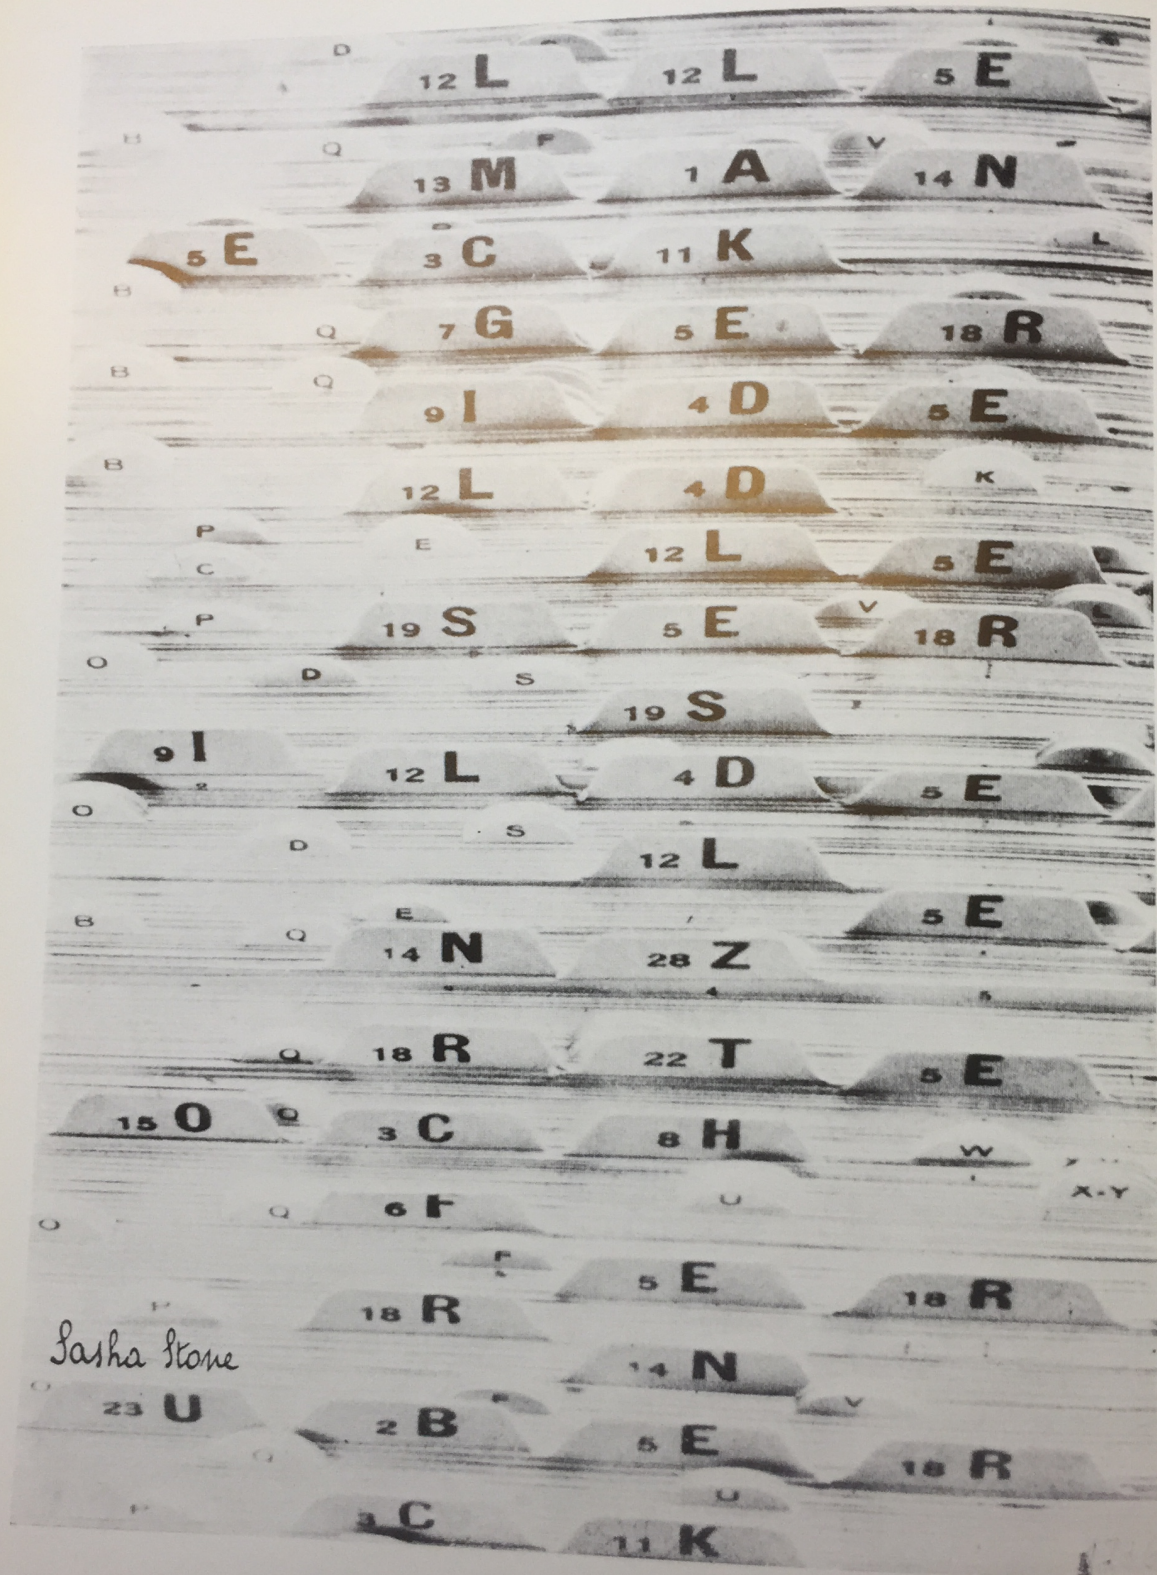 D 12 L 12 L 5 E
H Q F V
13 M 1 A 14 N
5 E 3 C 11 K L
B
Q 7 G 5 E 18 R
B Q 9 I 4 D 5 E
B 12 L 4 D K
P E 12 L 5 E
C
P 19 S 5 E V 18 R L
O D S
19 S
9 I 12 L 4 D 5 E
2
O D S 12 L
B E 5 E
Q 14 N 28 Z
4 5
Q 18 R 22 T 5 E
15 O Q 3 C 8 H W
X-Y
O Q 6 F U
F 5 E 18 R
P 18 R
Sasha Stone 14 N
O 23 U 2 B F 5 E V 18 R
Q
P 3 C 11 K U